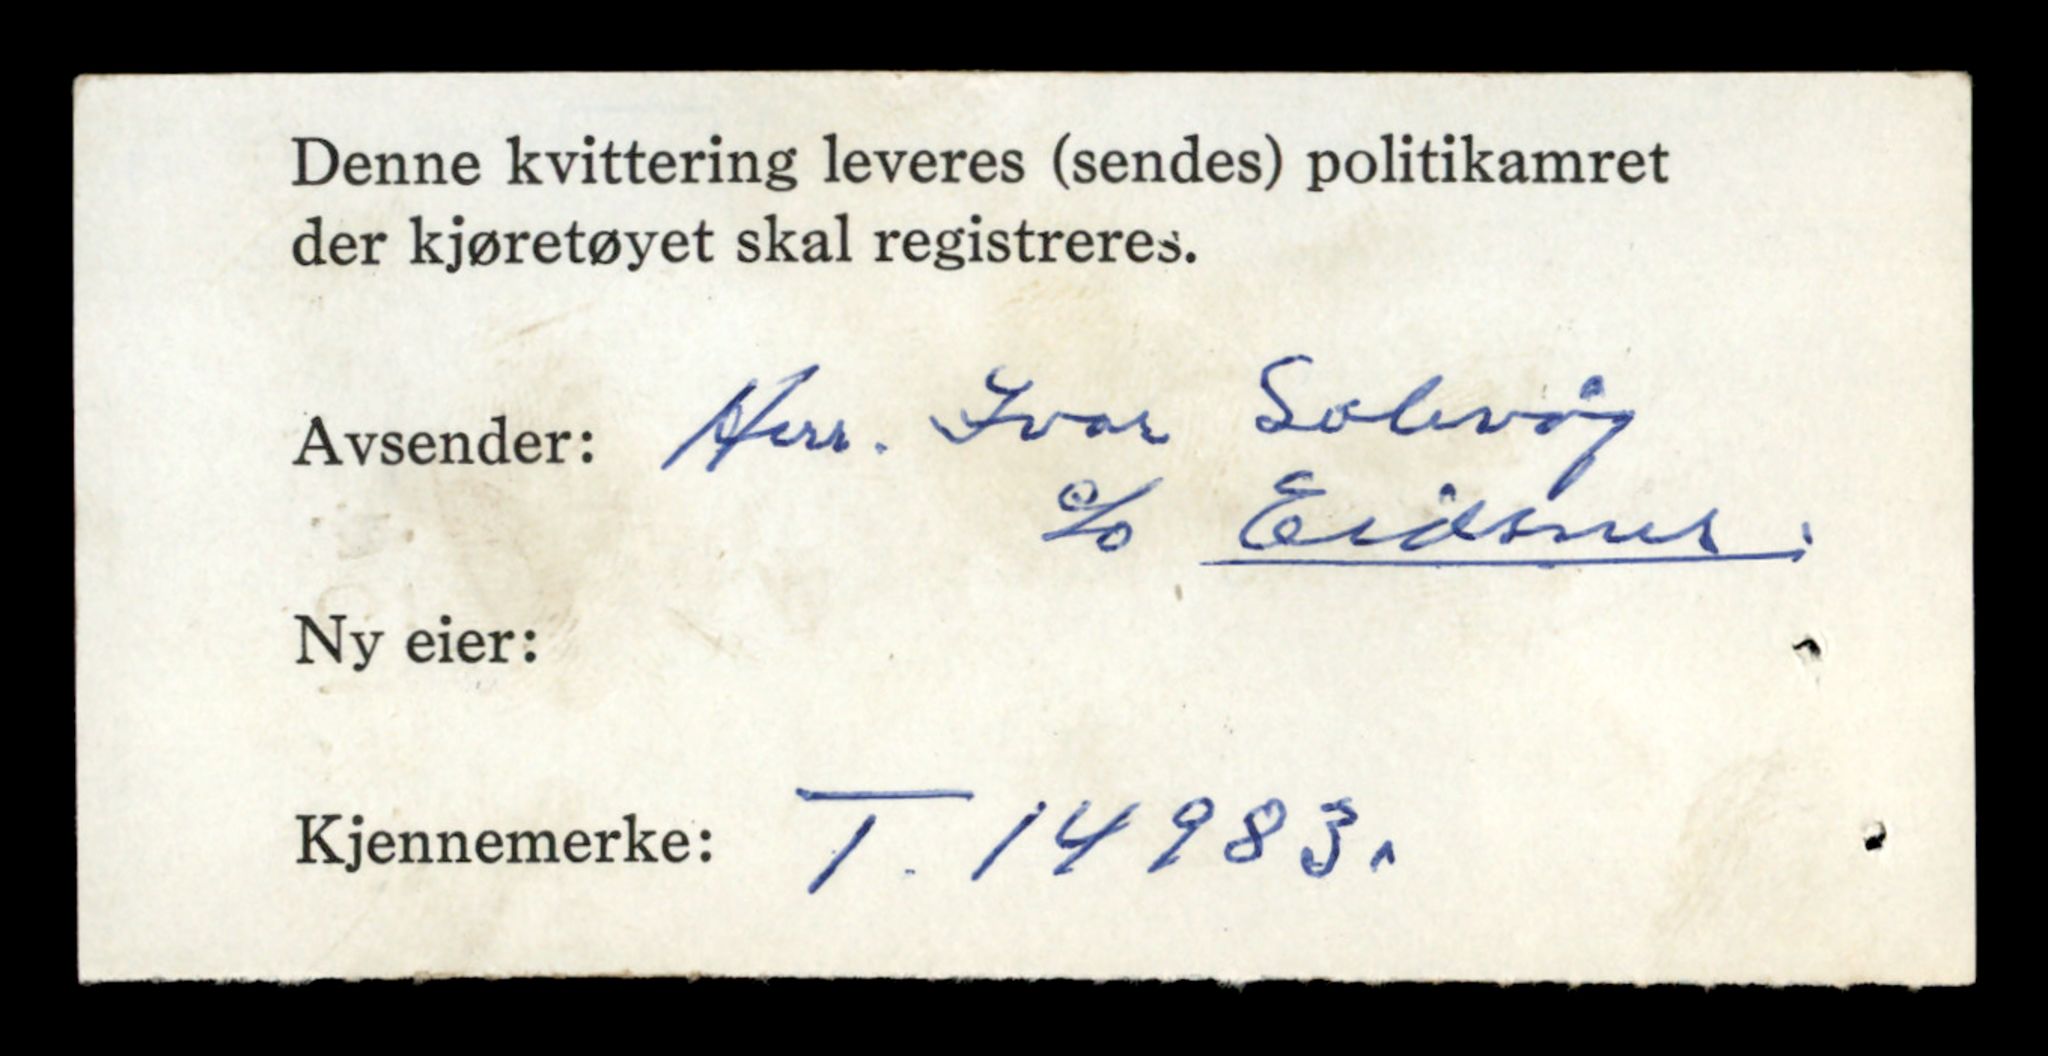 Denne kvittering leveres (sendes) politikamret
der kjøretøyet skal registreres.
Avsender: Herr. Ivar Solevåg
c/o Eidsnes.
Ny eier:
Kjennemerke: T. 14983.